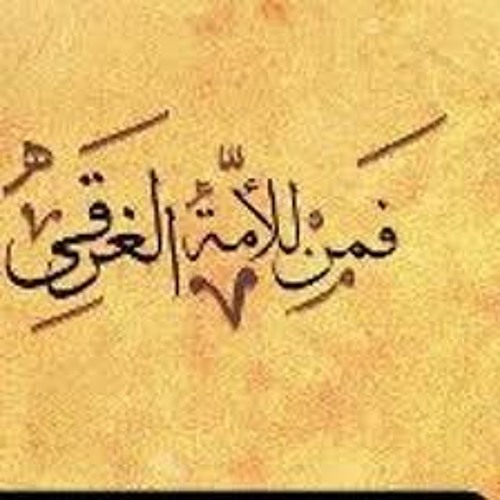 فَمَن للأُمّة الغَرقى